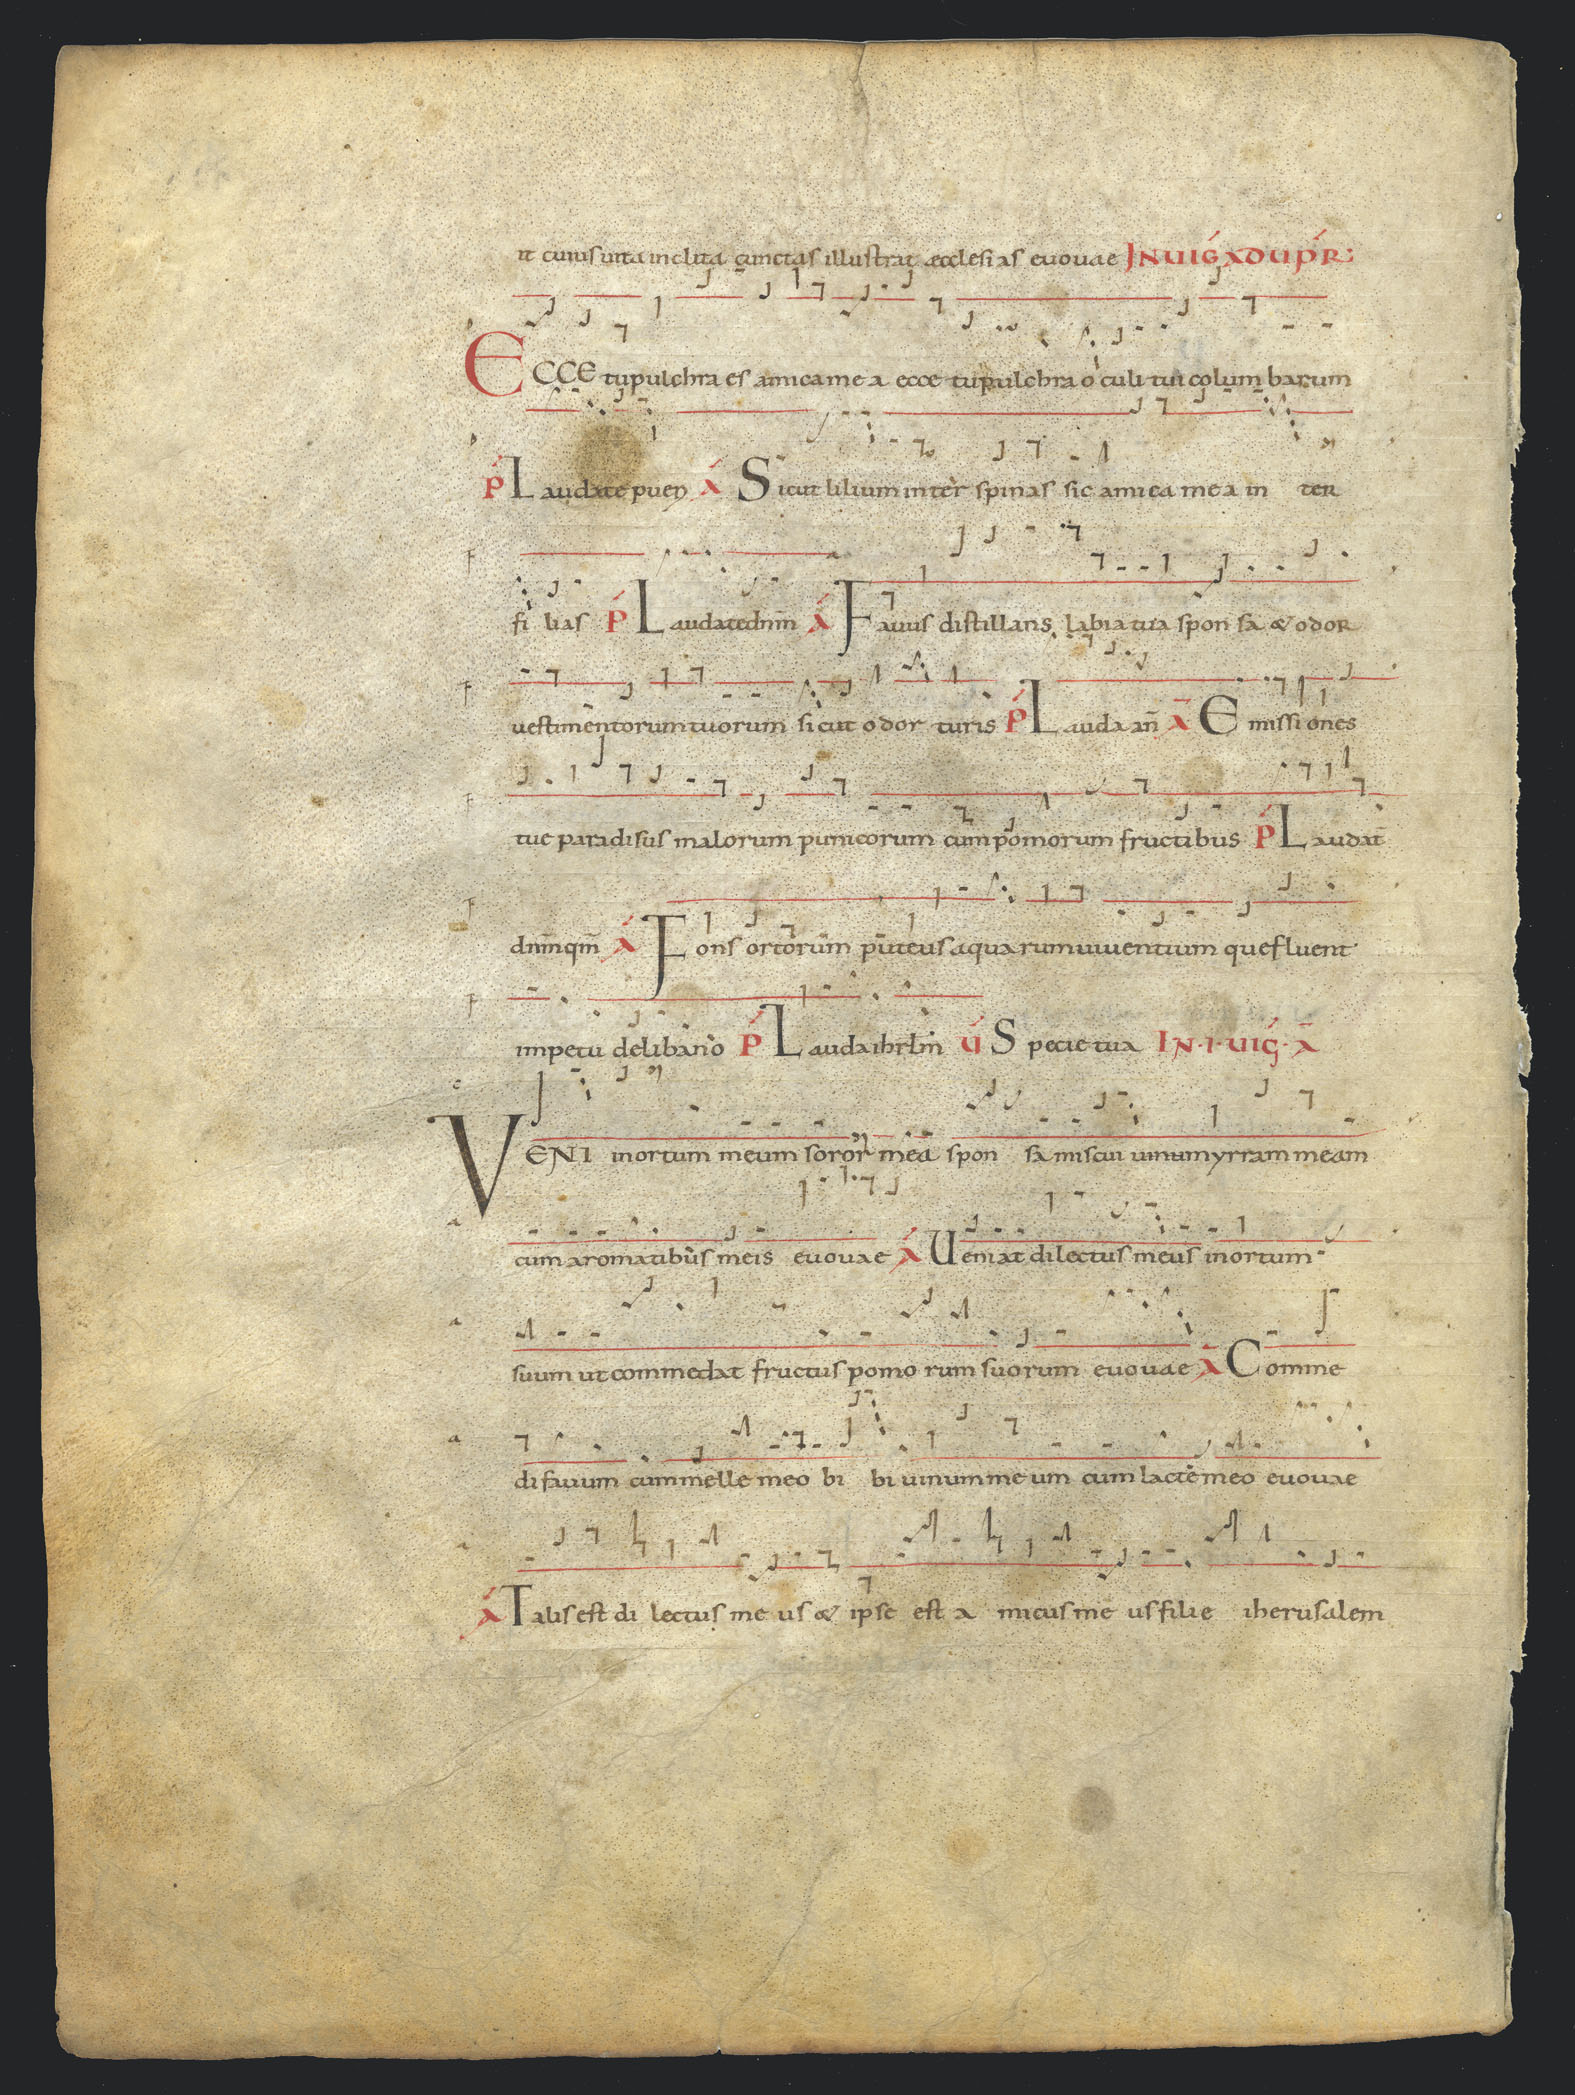 it cuius uita inclita cunctas illustrat ęcclesias euouae IN UIḠ AD UP̄R:
ECCE tu pulchra es amica mea ecce tu pulchra oculi tui columbarum
P̄ Laudate pueri Ā Sicut lilium inter spinas sic amica mea in ter
filias P̄ Laudate dnm̄ Ā Fauus distillans labia tua sponsa & odor
uestimentorum tuorum sicut odor turis P̄ Lauda an̄ Ā Emissiones
tue paradisus malorum punicorum cum pomorum fructibus P̄ Laudat̄
dnm̄ qm̄ Ā Fons ortorum puteus aquarum uiuentium que fluent
impetu de libano P̄ Lauda ihrlm̄ Ū Specie tua IN .I. UIḠ. Ā
VENI in ortum meum soror mea spon sa miscui uinum yrram meam
cum aromatibus meis euouae Ā Ueniat dilectus meus in ortum
suum ut commedat fructus pomo rum suorum euouae Ā Comme
di fauum cum melle meo bi bi uinum me um cum lacte meo euouae
Ā Talis est di lectus me us & ipse est a micus me us filie iherusalem
F
F
F
F
F
c
a
a
a
a